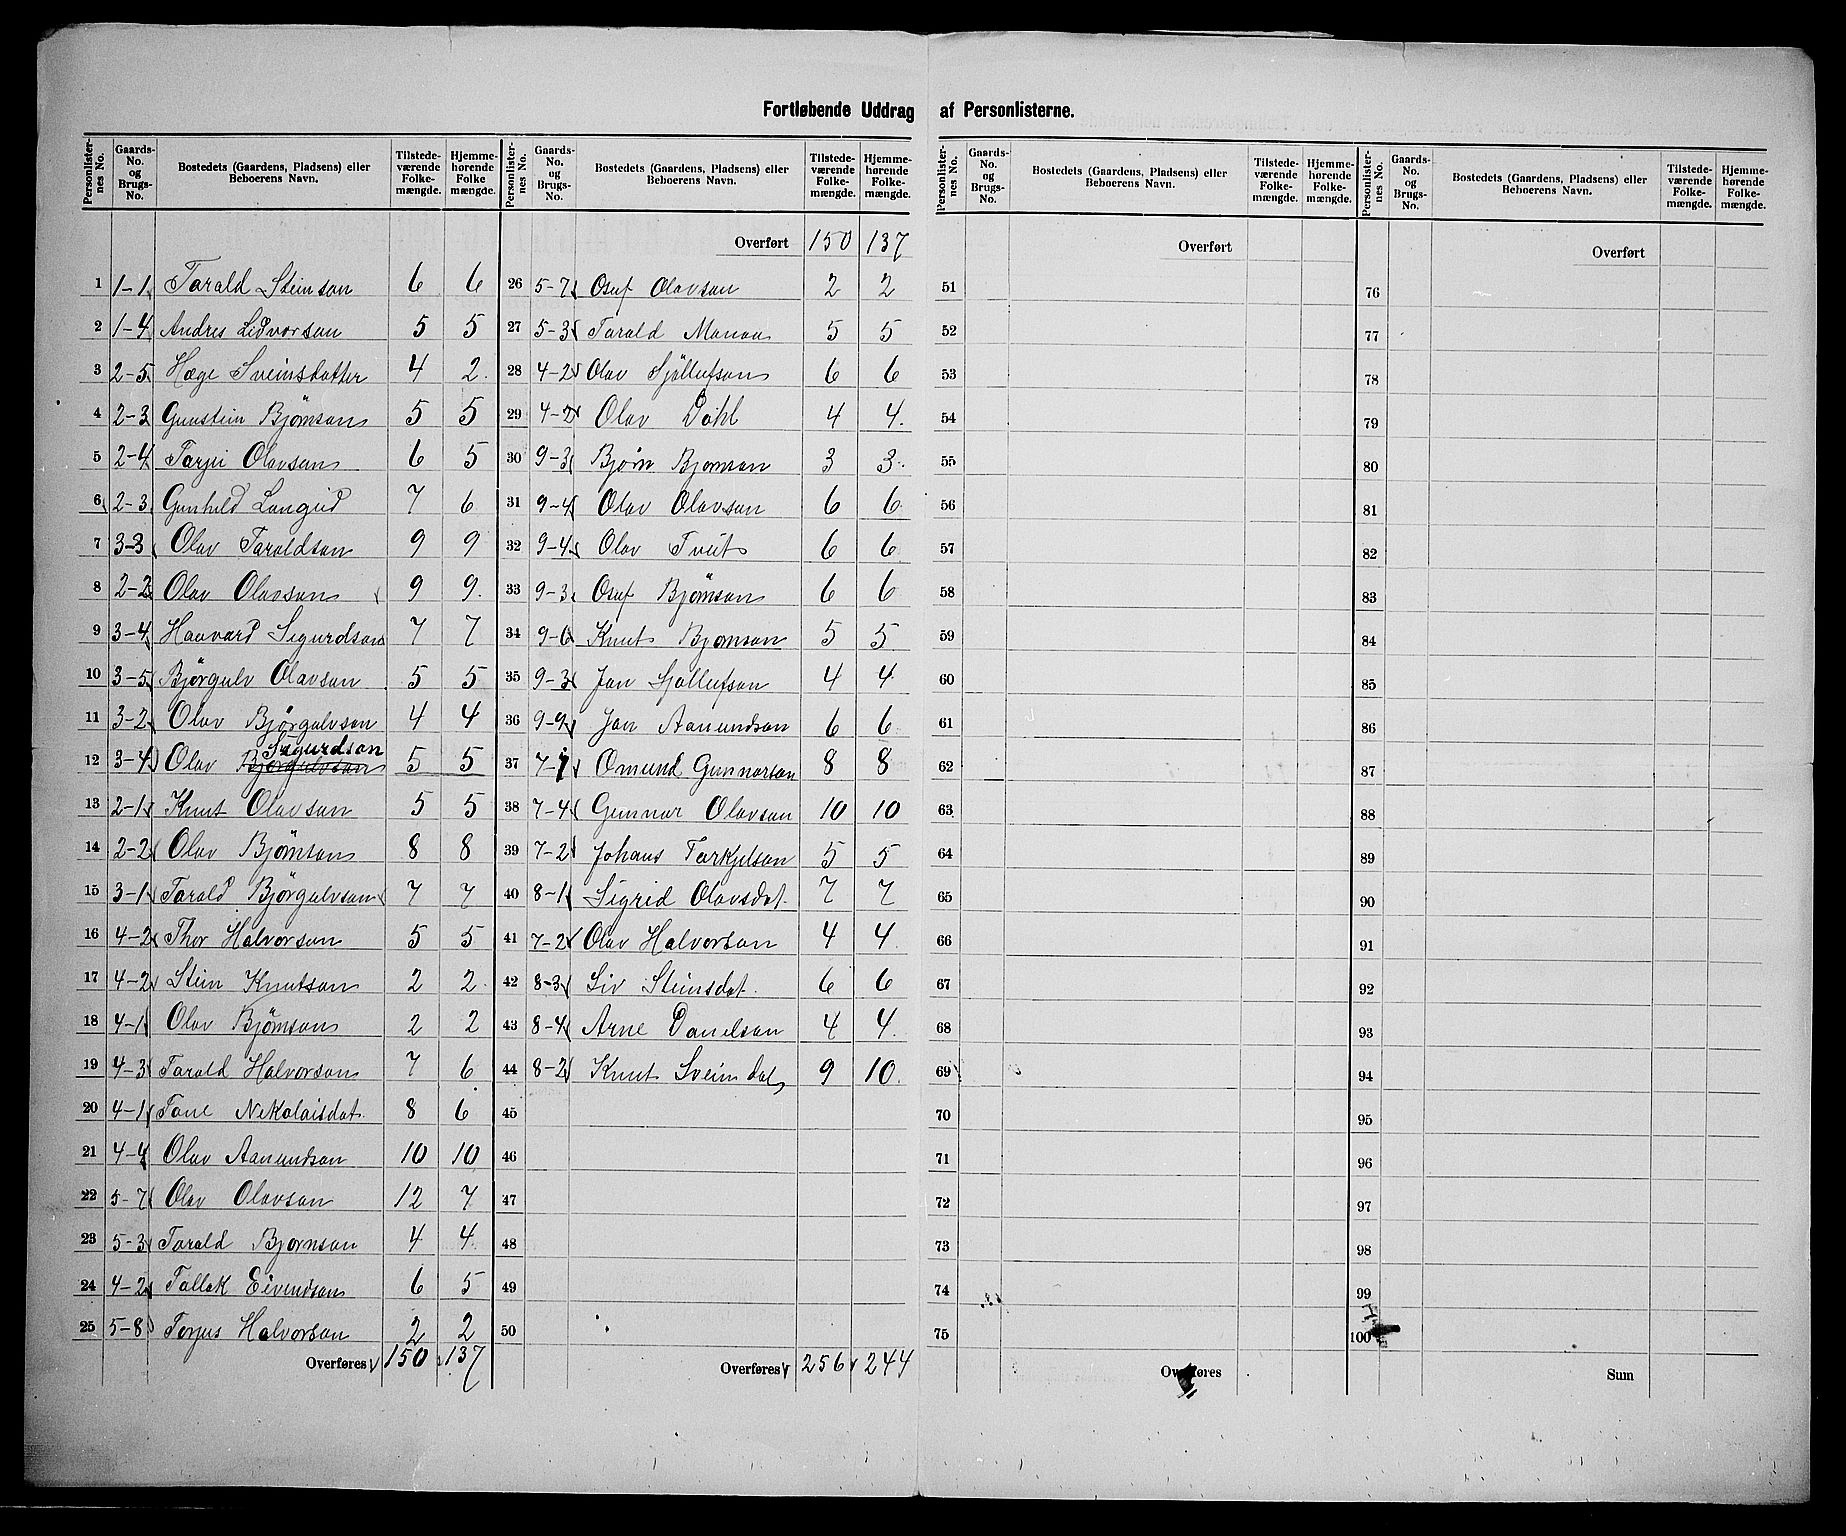 Fortløbende Uddrag af Personlisterne.
Personlister-nes No. Gaards-No. og Brugs-No. Bostedets (Gaardens, Pladsens) eller Beboerens Navn. Tilstede-værende Folke-mængde. Hjemme-hørende Folke mængde.
1 1-1 Tarald Steinson 6 6
2 1-4 Andres Lidvorson 5 5
3 2-5 Hæge Sveinsdatter 4 2
4 2-3 Gunstein Bjørnson 5 5
5 2-4 Tarjei Olavson 6 5
6 2-3 Gunhild Langeid 7 6
7 3-3 Olav Taraldson 9 9
8 2-2 Olav Olavson 9 9
9 3-4 Haavard Sigurdson 7 7
10 3-5 Bjørgulv Olavson 5 5
11 3-2 Olav Bjørgulvson 4 4
12 3-4 Olav Bjørgulvson Sigurdson 5 5
13 2-1 Knut Olavson 5 5
14 2-2 Olav Bjørnson 8 8
15 3-1 Tarald Bjørgulvson 7 7
16 4-2 Thor Halvorson 5 5
17 4-2 Stein Knutson 2 2
18 4-1 Olav Bjørnson 2 2
19 4-3 Tarald Halvorson 7 6
20 4-1 Tone Nekolaisdat. 8 6
21 4-4 Olav Aanundson 10 10
22 5-7 Olav Olavson 12 7
23 5-3 Tarald Bjørnson 4 4
24 4-2 Tallak Eivindson 6 5
25 5-8 Torjus Halvorson 2 2
Overføres 150 137
Personlister-nes No. Gaards-No. og Brugs-No. Bostedets (Gaardens, Pladsens) eller Beboerens Navn. Tilstede-værende Folke-mængde. Hjemme-hørende Folke-mængde.
Overført 150 137
26 5-7 Osuf Olavson 2 2
27 5-3 Tarald Monaa 5 5
28 4-2 Olav Sjöllufson 6 6
29 4-2 Olav Dahl 4 4
30 9-3 Bjørn Bjørnson 3 3
31 9-4 Olav Olavson 6 6
32 9-4 Olav Tveit 6 6
33 9-3 Osuf Bjørnson 6 6
34 9-6 Knut Bjørnson 5 5
35 9-3 Jon Sjöllufson 4 4
36 9-9 Jon Aanundson 6 6
37 7-1 Omund Gunnarson 8 8
38 7-4 Gunnar Olavson 10 10
39 7-2 Johans Tarkjelson 5 5
40 8-1 Sigrid Olavsdat. 7 7
41 7-2 Olav Halvorson 4 4
42 8-3 Liv Steinsdat. 6 6
43 8-4 Arne Danelson 4 4
44 8-2 Knut Sveindal 9 10
45
46
47
48
49
50
Overføres 256 244
Personlister-nes No. Gaards-No. og Brugs-No. Bostedets (Gaardens, Pladsens) eller Beboerens Navn. Tilstede-værende Folke-mængde. Hjemme-hørende Folke-mængde.
Overført
51
52
53
54
55
56
57
58
59
60
61
62
63
64
65
66
67
68
69
70
71
72
73
74
75
Overføres
Personlister-nes No. Gaards-No. og Brugs-No. Bostedets (Gaardens, Pladsens) eller Beboerens Navn. Tilstede-værende Folke-mængde. Hjemme-hørende Folke-mængde.
Overført
76
77
78
79
80
81
82
83
84
85
86
87
88
89
90
91
92
93
94
95
96
97
98
99
100
Sum